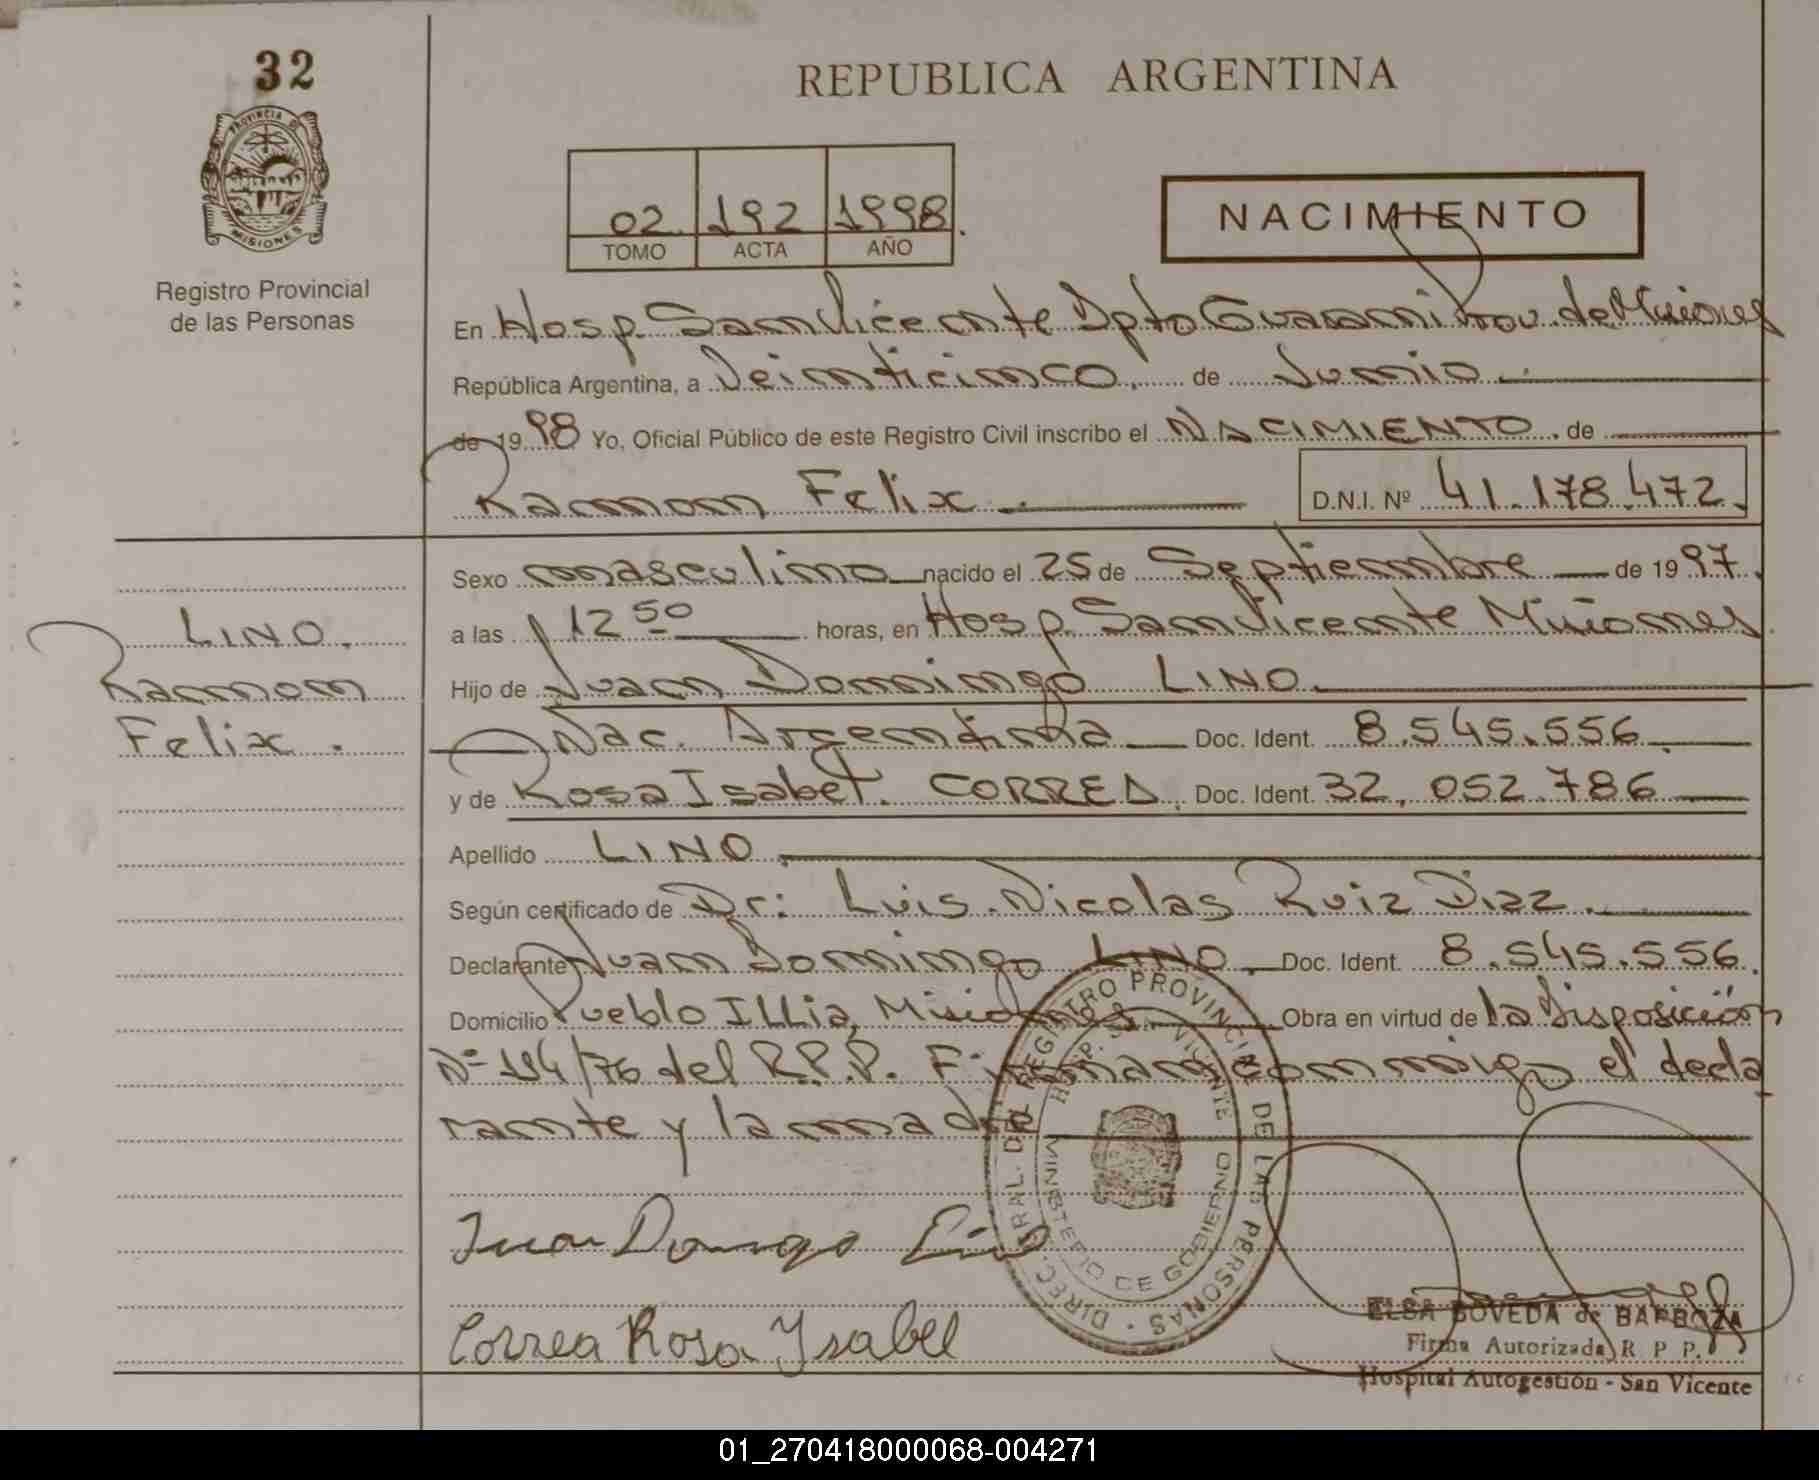 32
REPUBLICA ARGENTINA
PROVINCIA DE MISIONES
Registro Provincial
de las Personas
02. 192 1998.
TOMO ACTA AÑO
NACIMIENTO
En Hosp. San Vicente Dpto Guarani Prov. de Misiones
República Argentina, a Veinticinco. de Junio
de 1998 Yo, Oficial Público de este Registro Civil inscribo el NACIMIENTO. de
Ramon Felix. D.N.I. Nº 41.178.472.
Sexo masculino nacido el 25 de Septiembre de 1997.
LINO.
a las 12 50 horas, en Hosp. San Vicente Misiones
Ramon
Hijo de Juan Domingo LINO.
Felix.
Nac. Argentina Doc. Ident. 8.545.556.
y de Rosa Isabel. CORREA. Doc. Ident. 32.052.786
Apellido LINO.
Según certificado de Dr: Luis Nicolas Ruiz Diaz.
Declarante Juan Domingo LINO. Doc. Ident. 8.545.556.
Domicilio Pueblo ILLia, Misiones. Obra en virtud de la Disposición
Nº 194/76 del R.P.P. Firman conmigo el decla
rante y la madre
DIREC. GRAL. DEL REGISTRO PROVINCIAL DE LAS PERSONAS
HOSP. SAN VICENTE
MINISTERIO DE GOBIERNO
Juan Domingo Lino
Correa Rosa Ysabel
ELSA BOVEDA de BARBOZA
Firma Autorizada R P P.
Hospital Autogestion - San Vicente
01_270418000068-004271